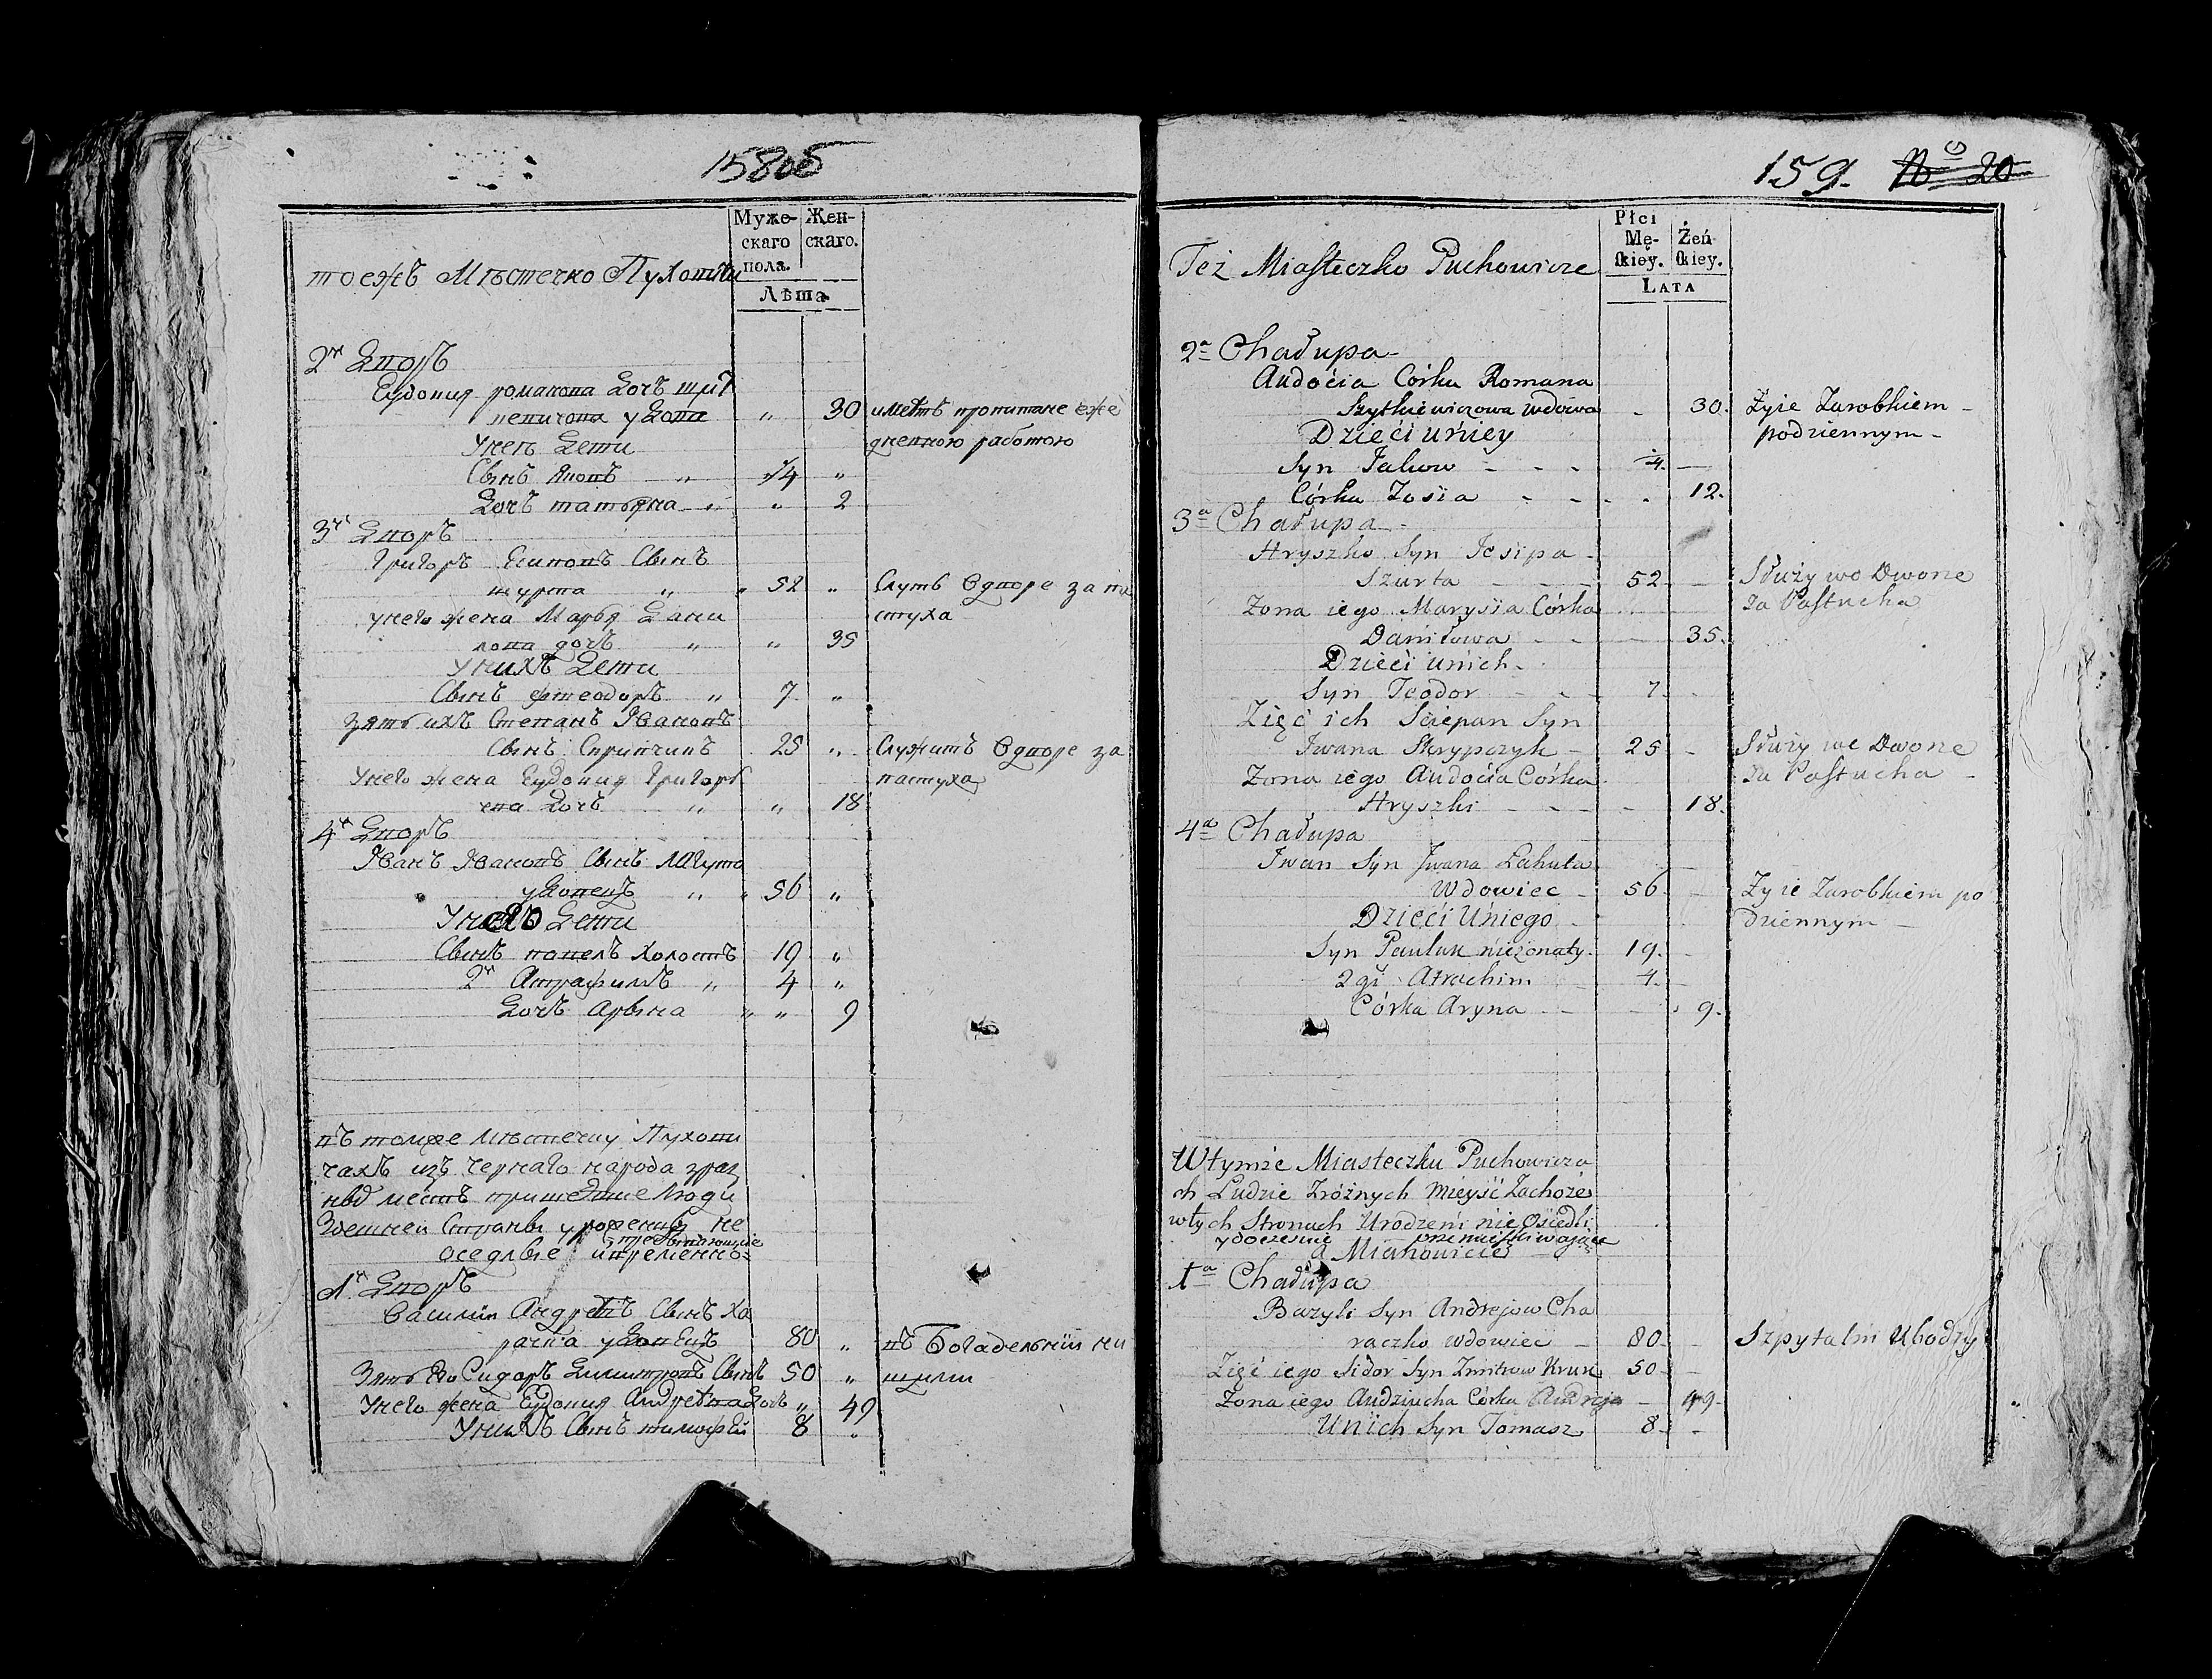 158 об
Муже-
скаго
пола.
Жен-
скаго.
Лѣта
тоежъ Мѣстечко Пуховичи
2й Дворъ
Еудокия романова Дочъ шит
кевичова удова " 30 имеетъ пропитание еже
дневною работою
Унеѣ Дети
Сынъ Яковъ " 4 "
Дочъ татьяна " " 2
3й Дворъ
Григоръ Есиповъ Сынъ
шурта " 52 " Служъ Одворе за па
стуха
унего жена Марья Дани
лова дочъ " " 35
Унихъ Дети
Сынъ фтеодоръ " 7 "
Зять ихъ Степанъ Ивановъ
Сынъ Скрипчикъ 25 " Служитъ Одворе за
пастуха
Унего жена Еудокия Григорь
ева Дочъ " " 18
4й Дворъ
Иванъ Ивановъ Сынъ Лагута
удовецъ " 56 "
Унего Дети
Сынъ павелъ Холостъ 19 "
2й Атрафимъ " 4 "
Дочъ Арына " " 9
въ томже мѣстечку Пухови
чахъ изъ чернаго народа зраз
ныхъ местъ пришедшие Люди
Здешней Страны урожениы не
оседлые ивременно
пребывающие
1й Дворъ
Василий Андреевъ Сынъ Ха
рачка удовецъ 80 " въ Богадельнии ни
щими
Зять Его Сидоръ Дмитровъ Сынъ 50 "
Унего жена Еудокия Андреева Дочъ " 49
Унихъ Сынъ тимофей 8 "
159. № 20
Płci
Mę-
skiey.
Żeń
skiey.
LATA
Też Miasteczko Puchowicze
2a Chałupa
Audocia Córka Romana
Szytkiewiczowa wdowa - 30. Żyie Zarobkiem
podziennym
Dzieci uniey
Syn Jakow - - - 4. -
Córka Zosia - - - 12.
3a Chałupa
Hryszko Syn Jesipa
Szurta - - - 52 - Służy wo Dworze
za Pastucha
Zona iego Marysia Córka
Daniłowa - - - 35.
Dzieci unich
Syn Teodor - - - 7. -
Zięć ich Sciepan Syn
Jwana Skrypczyk - 25 - Służy we Dworze
za Pastucha
Zona iego Audocia Córka
Hryszki - - - - 18.
4a Chałupa
Iwan Syn Jwana Łahuta
Wdowiec - 56. - Zyie Zarobkiem po
dziennym
Dzieci Uniego
Syn Pauluk nieżonaty. 19. -
2gi Atrachim 4. -
Córka Aryna - - - 9.
Wtymże Miasteczku Puchowicza
ch Ludzie Zróżnych Mieysć Zachoże
wtych Stronach Urodzeni nie Osiedli
ydoczesnie przemieszkiwające
a Mianowicie
1a Chałupa
Bazyli Syn Andrejow Cha
raczko wdowiec - 80. - Szpytalni Ubodzy
Zięć iego Sidor Syn Zmitrow Kruk 50. -
Zona iego Audziucha Córka Andreja - 49.
Unich Syn Tomasz 8. -